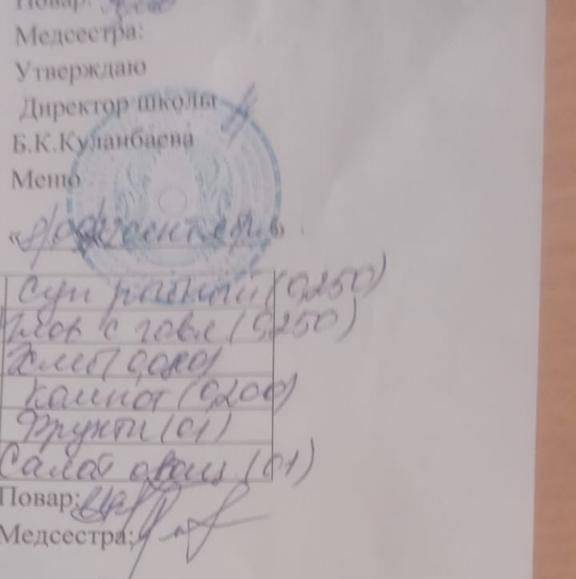 Повар:
Медсестра:
Утверждаю
Директор школы
Б.К.Куланбаева
Меню
« сентября»
Суп (0,250)
Плов с говл (0,250)
Хлеб
Компот (0,200)
Фрукты (0,1)
Салат овощ (0,1)
Повар:
Медсестра: